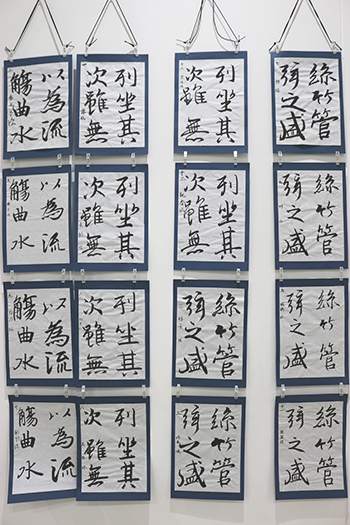 以為流
觴曲水
以為流
觴曲水
以為流
觴曲水
以為流
觴曲水
列坐其
次雖無
列坐其
次雖無
列坐其
次雖無
列坐其
次雖無
列坐其
次雖無
列坐其
次雖無
絲竹管
弦之盛
絲竹管
弦之盛
絲竹管
弦之盛
絲竹管
弦之盛
絲竹管
弦之盛
絲竹管
弦之盛